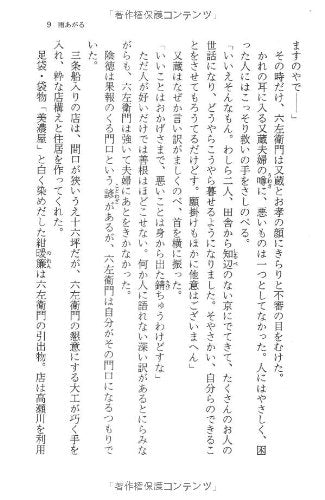 「著作権保護コンテンツ」
9 雨あがる
ますのやで――」
その時だけ、六左衛門は又蔵とお孝の顔にきらりと不審の目をむけた。
かれの耳に入る又蔵夫婦の噂に、悪いものは一つとしてなかった。人にはやさしく、困
った人にはこっそり救いの手をさしのべる。
「いいえそんなもん。わしら二人、田舎から知辺のない京にでてきて、たくさんのお人の
世話になり、どうやらこうやら暮せるようになりました。そやさかい、自分らのできるこ
とをさせてもろうてるだけどす。願掛けもほかに他意はございまへん」
又蔵はなぜか言い訳がましくのべ、首を横に振った。
「いいことはおかげさまで、悪いことは身から出た錆ちゅうわけどすな」
ただ人が好いだけでは善根はほどこせない。何か人に語れない深い訳があるとにらみな
がらも、六左衛門は強いて夫婦にあとをきかなかった。
陰徳は果報のくる門口という諺があるが、六左衛門は自分がその門口になるつもりで
いた。
三条船入りの店は、間口が狭いうえ十六坪だが、六左衛門の懇意にする大工が巧く手を
入れ、粋な店構えと住居を作ってくれた。
足袋・袋物「美濃屋」と白く染めだした紺暖簾は六左衛門の引出物。店は高瀬川を利用
「著作権保護コンテンツ」